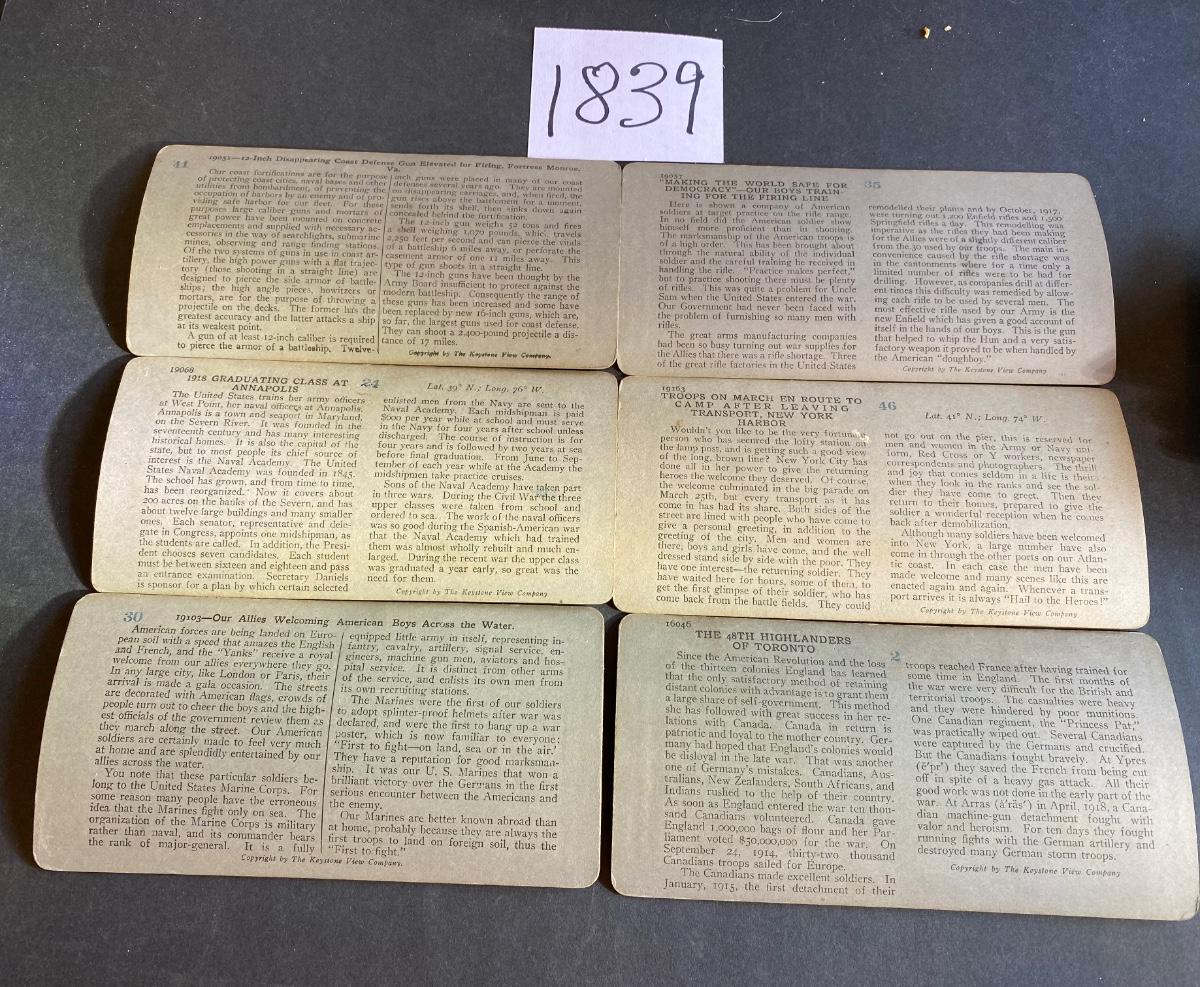 1839
41
19051—12-Inch Disappearing Coast Defense Gun Elevated for Firing, Fortress Monroe,
Va.
Our coast fortifications are for the purpose
of protecting coast cities, naval bases and other
utilities from bombardment, of preventing the
occupation of harbors by an enemy and of pro-
viding safe harbor for our fleet. For these
purposes large caliber guns and mortars of
great power have been mounted on concrete
emplacements and supplied with necessary ac-
cessories in the way of searchlights, submarine
mines, observing and range finding stations.
Of the two systems of guns in use in coast ar-
tillery, the high power guns with a flat trajec-
tory (those shooting in a straight line) are
designed to pierce the side armor of battle-
ships; the high angle pieces, howitzers or
mortars, are for the purpose of throwing a
projectile on the decks. The former has the
greatest accuracy and the latter attacks a ship
at its weakest point.
A gun of at least 12-inch caliber is required
to pierce the armor of a battleship. Twelve-
inch guns were placed in many of our coast
defenses several years ago. They are mounted
on disappearing carriages, and, when fired, the
gun rises above the battlement for a moment,
sends forth its shell, then sinks down again
concealed behind the fortification.
The 12-inch gun weighs 52 tons and fires
a shell weighing 1,070 pounds, which travels
2,250 feet per second and can pierce the walls
of a battleship 6 miles away, or perforate the
casement armor of one 11 miles away. This
type of gun shoots in a straight line.
The 12-inch guns have been thought by the
Army Board insufficient to protect against the
modern battleship. Consequently the range of
these guns has been increased and some have
been replaced by new 16-inch guns, which are,
so far, the largest guns used for coast defense.
They can shoot a 2,400-pound projectile a dis-
tance of 17 miles.
Copyright by The Keystone View Company.
19037
35
"MAKING THE WORLD SAFE FOR
DEMOCRACY"—OUR BOYS TRAIN-
ING FOR THE FIRING LINE
Here is shown a company of American
soldiers at target practice on the rifle range.
In no field did the American soldier show
himself more proficient than in shooting.
The marksmanship of the American troops is
of a high order. This has been brought about
through the natural ability of the individual
soldier and the careful training he received in
handling the rifle. "Practice makes perfect,"
but to practice shooting there must be plenty
of rifles. This was quite a problem for Uncle
Sam when the United States entered the war.
Our Government had never been faced with
the problem of furnishing so many men with
rifles.
The great arms manufacturing companies
had been so busy turning out war supplies for
the Allies that there was a rifle shortage. Three
of the great rifle factories in the United States
remodelled their plants and by October, 1917,
were turning out 1,200 Enfield rifles and 1,500
Springfield rifles a day. This remodelling was
imperative as the rifles they had been making
for the Allies were of a slightly different caliber
from the 30 used by our troops. The main in-
convenience caused by the rifle shortage was
in the cantonments where for a time only a
limited number of rifles were to be had for
drilling. However, as companies drill at differ-
ent times this difficulty was remedied by allow-
ing each rifle to be used by several men. The
most effective rifle used by our Army is the
new Enfield which has given a good account of
itself in the hands of our boys. This is the gun
that helped to whip the Hun and a very satis-
factory weapon it proved to be when handled by
the American "doughboy."
Copyright by The Keystone View Company
19068
24
1918 GRADUATING CLASS AT
ANNAPOLIS
Lat. 39° N.; Long. 76° W.
The United States trains her army officers
at West Point, her naval officers at Annapolis.
Annapolis is a town and seaport in Maryland,
on the Severn River. It was founded in the
seventeenth century and has many interesting
historical homes. It is also the capital of the
state, but to most people its chief source of
interest is the Naval Academy. The United
States Naval Academy was founded in 1845.
The school has grown, and from time to time,
has been reorganized. Now it covers about
200 acres on the banks of the Severn, and has
about twelve large buildings and many smaller
ones. Each senator, representative and dele-
gate in Congress, appoints one midshipman, as
the students are called. In addition, the Presi-
dent chooses seven candidates. Each student
must be between sixteen and eighteen and pass
an entrance examination. Secretary Daniels
is sponsor for a plan by which certain selected
enlisted men from the Navy are sent to the
Naval Academy. Each midshipman is paid
$600 per year while at school and must serve
in the Navy for four years after school unless
discharged. The course of instruction is for
four years and is followed by two years at sea
before final graduation. From June to Sep-
tember of each year while at the Academy the
midshipmen take practice cruises.
Sons of the Naval Academy have taken part
in three wars. During the Civil War the three
upper classes were taken from school and
ordered to sea. The work of the naval officers
was so good during the Spanish-American war
that the Naval Academy which had trained
them was almost wholly rebuilt and much en-
larged. During the recent war the upper class
was graduated a year early, so great was the
need for them.
Copyright by The Keystone View Company
19163
46
TROOPS ON MARCH EN ROUTE TO
CAMP AFTER LEAVING
TRANSPORT, NEW YORK
HARBOR
Lat. 41° N.; Long. 74° W.
Wouldn't you like to be the very fortunate
person who has secured the lofty station on
the lamp post, and is getting such a good view
of the long, brown line? New York City has
done all in her power to give the returning
heroes the welcome they deserved. Of course,
the welcome culminated in the big parade on
March 25th, but every transport as it has
come in has had its share. Both sides of the
street are lined with people who have come to
give a personal greeting, in addition to the
greeting of the city. Men and women are
there, boys and girls have come, and the well
dressed stand side by side with the poor. They
have one interest—the returning soldier. They
have waited here for hours, some of them, to
get the first glimpse of their soldier, who has
come back from the battle fields. They could
not go out on the pier, this is reserved for
men and women in the Army or Navy uni-
form, Red Cross or Y workers, newspaper
correspondents and photographers. The thrill
and joy that comes seldom in a life is theirs
when they look in the ranks and see the sol-
dier they have come to greet. Then they
return to their homes, prepared to give the
soldier a wonderful reception when he comes
back after demobilization.
Although many soldiers have been welcomed
into New York, a large number have also
come in through the other ports on our Atlan-
tic coast. In each case the men have been
made welcome and many scenes like this are
enacted again and again. Whenever a trans-
port arrives it is always "Hail to the Heroes!"
Copyright by The Keystone View Company
30
19103—Our Allies Welcoming American Boys Across the Water.
American forces are being landed on Euro-
pean soil with a speed that amazes the English
and French, and the "Yanks" receive a royal
welcome from our allies everywhere they go.
In any large city, like London or Paris, their
arrival is made a gala occasion. The streets
are decorated with American flags, crowds of
people turn out to cheer the boys and the high-
est officials of the government review them as
they march along the street. Our American
soldiers are certainly made to feel very much
at home and are splendidly entertained by our
allies across the water.
You note that these particular soldiers be-
long to the United States Marine Corps. For
some reason many people have the erroneous
idea that the Marines fight only on sea. The
organization of the Marine Corps is military
rather than naval, and its commander bears
the rank of major-general. It is a fully
equipped little army in itself, representing in-
fantry, cavalry, artillery, signal service, en-
gineers, machine gun men, aviators and hos-
pital service. It is distinct from other arms
of the service, and enlists its own men from
its own recruiting stations.
The Marines were the first of our soldiers
to adopt splinter-proof helmets after war was
declared, and were the first to hang up a war
poster, which is now familiar to everyone:
"First to fight—on land, sea or in the air.'
They have a reputation for good marksman-
ship. It was our U. S. Marines that won a
brilliant victory over the Germans in the first
serious encounter between the Americans and
the enemy.
Our Marines are better known abroad than
at home, probably because they are always the
first troops to land on foreign soil, thus the
"First to fight."
Copyright by The Keystone View Company.
16046
2
THE 48TH HIGHLANDERS
OF TORONTO
Since the American Revolution and the loss
of the thirteen colonies England has learned
that the only satisfactory method of retaining
distant colonies with advantage is to grant them
a large share of self-government. This method
she has followed with great success in her re-
lations with Canada. Canada in return is
patriotic and loyal to the mother country. Ger-
many had hoped that England's colonies would
be disloyal in the late war. That was another
one of Germany's mistakes. Canadians, Aus-
tralians, New Zealanders, South Africans, and
Indians rushed to the help of their country.
As soon as England entered the war ten thou-
sand Canadians volunteered. Canada gave
England 1,000,000 bags of flour and her Par-
liament voted $50,000,000 for the war. On
September 24, 1914, thirty-two thousand
Canadians troops sailed for Europe.
The Canadians made excellent soldiers. In
January, 1915, the first detachment of their
troops reached France after having trained for
some time in England. The first months of
the war were very difficult for the British and
territorial troops. The casualties were heavy
and they were hindered by poor munitions.
One Canadian regiment, the "Princess Pat,"
was practically wiped out. Several Canadians
were captured by the Germans and crucified.
But the Canadians fought bravely. At Ypres
(ē'pr') they saved the French from being cut
off in spite of a heavy gas attack. All their
good work was not done in the early part of the
war. At Arras (à'räs') in April, 1918, a Cana-
dian machine-gun detachment fought with
valor and heroism. For ten days they fought
running fights with the German artillery and
destroyed many German storm troops.
Copyright by The Keystone View Company